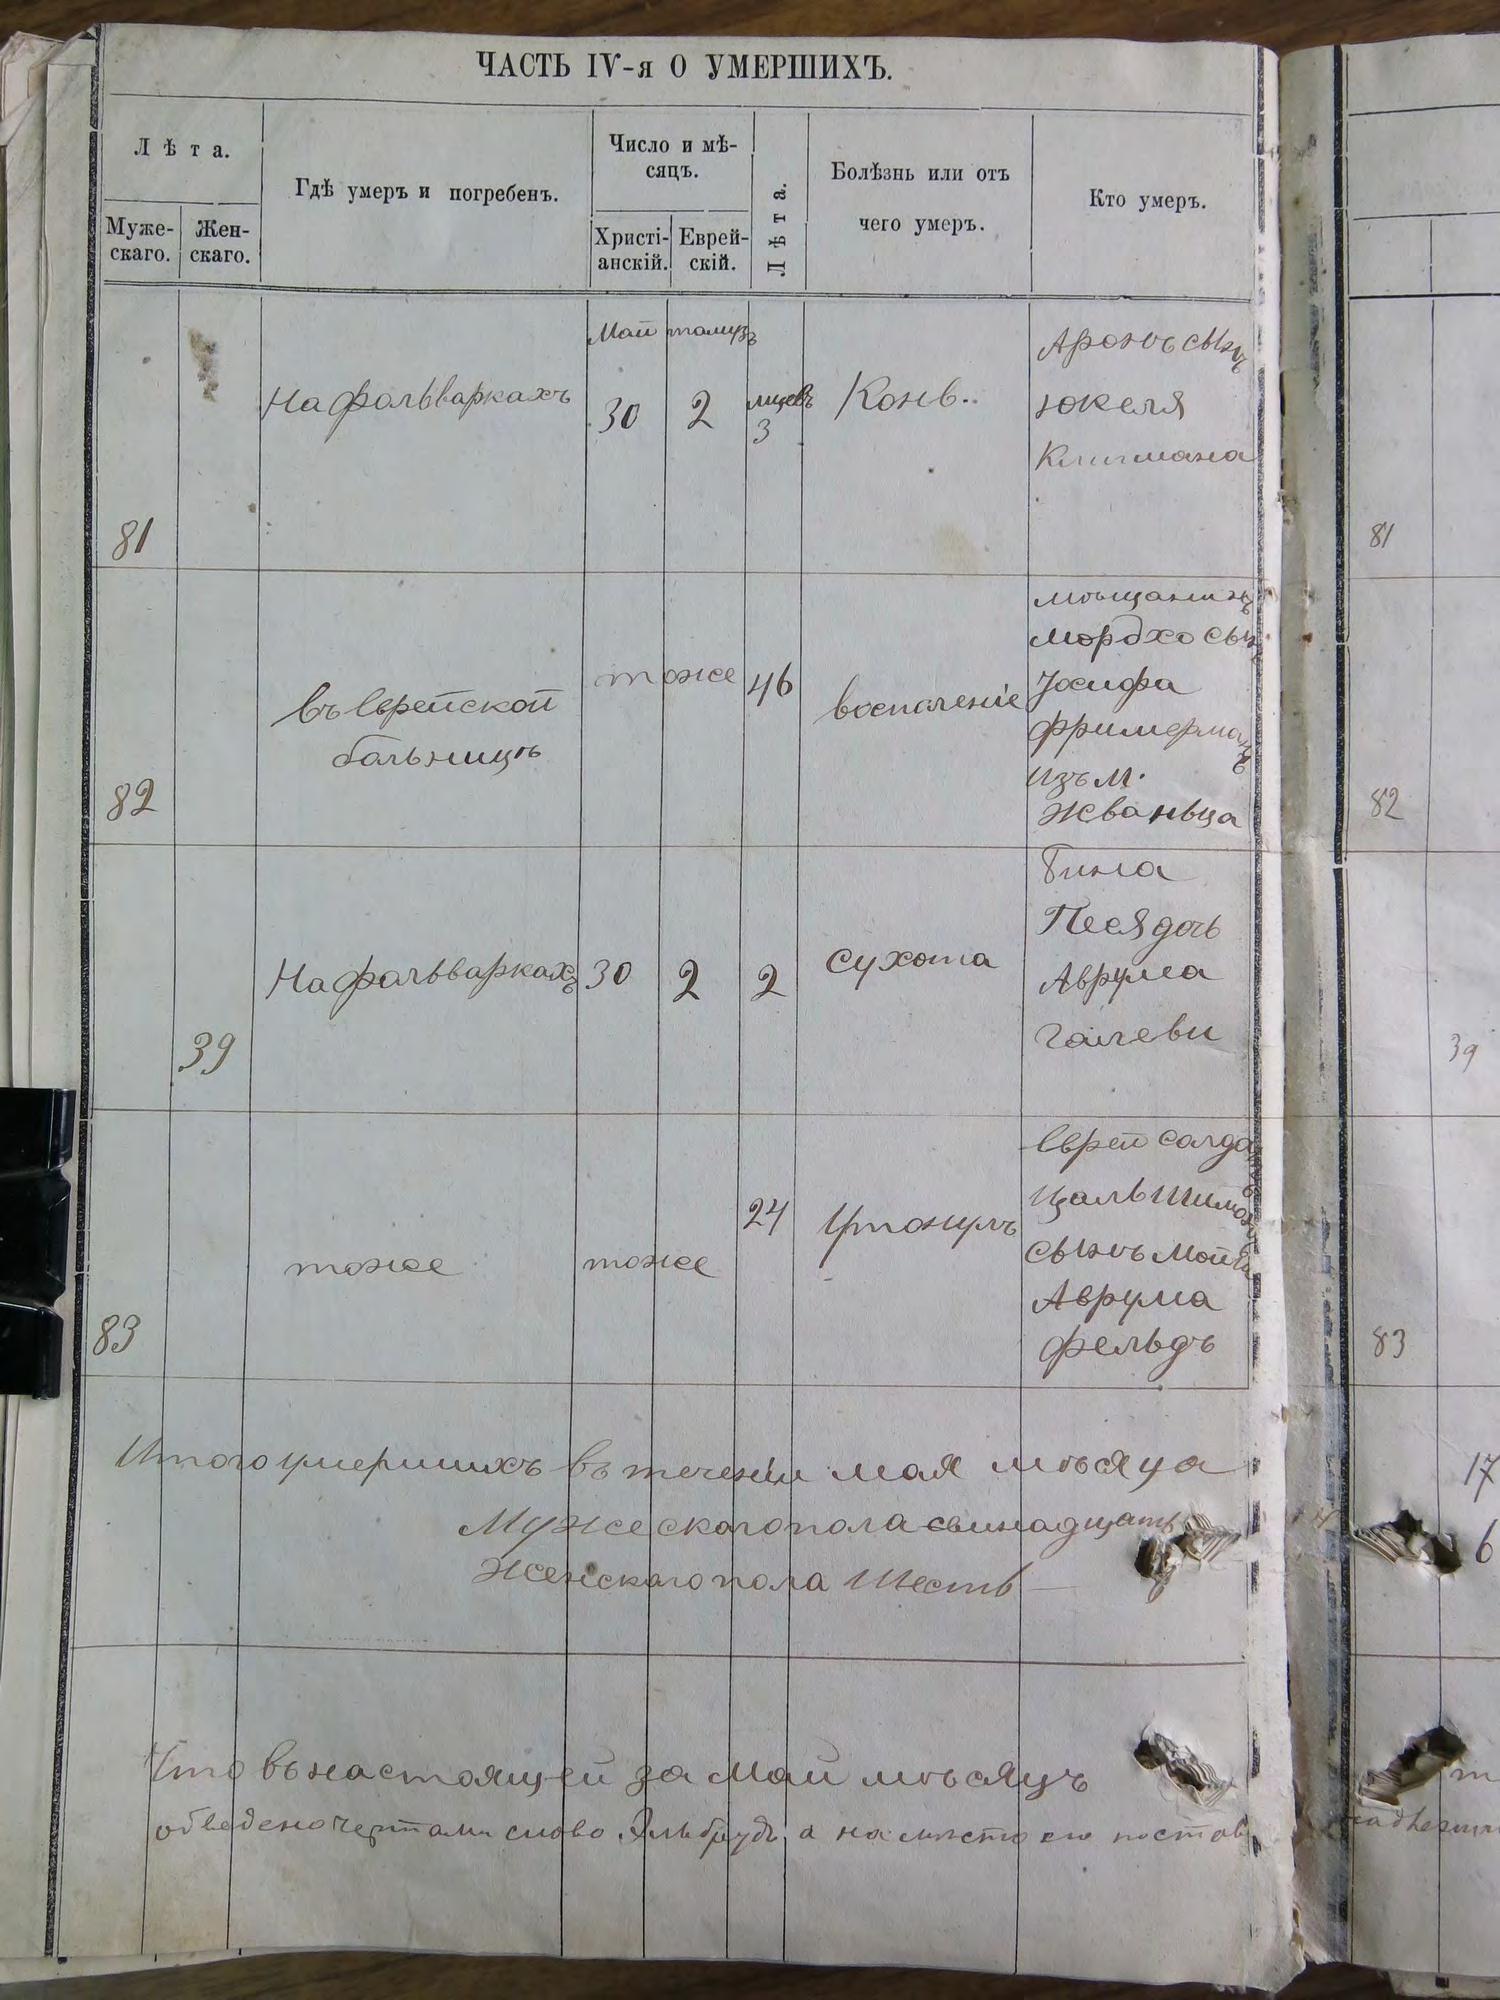 ЧАСТЬ IV-я О УМЕРШИХЪ.
Лѣта.
Муже-
скаго.
Жен-
скаго.
Гдѣ умеръ и погребенъ.
Число и мѣ-
сяцъ.
Христі-
анскій.
Еврей-
скій.
Лѣта.
Болѣзнь или отъ
чего умеръ.
Кто умеръ.
81
На фольваркахъ
Май
30
тамузъ
2
3
Конв..
Аронъ сынъ
Юкеля
Клигмана
81
82
въ Еврейской
больницѣ
тоже
46
воспаленіе
мѣщанинъ
Мордхо сынъ
Іосифа
Фримерманъ
изъ м.
Жваньца
82
39
На фольваркахъ
30
2
2
Сухота
Бина
Песя дочь
Аврума
39
83
тоже
тоже
24
Утонулъ
Еврей солдатъ
Цаль Шимонъ
сынъ
Аврума
Фельдъ
83
Итого умершихъ въ теченіи мая мѣсяца
Мужескаго пола
Женскаго пола Шесть
17
6
Что въ настоящей за Май мѣсяцъ
обведено чертами слово а на мѣсто его постав